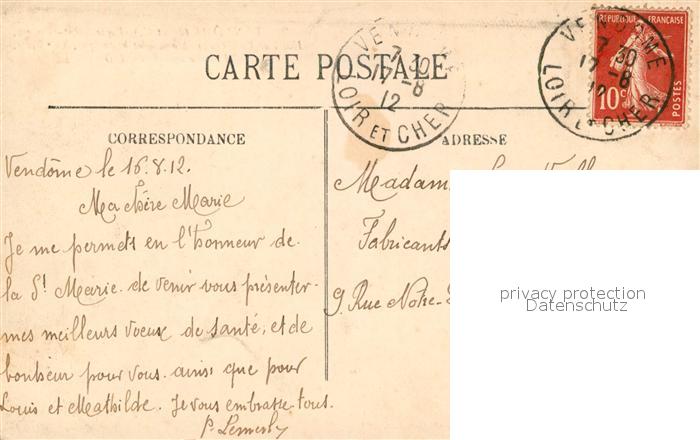 CARTE POSTALE
VENDOME
7 30
17-8
12
LOIR ET CHER
VENDOME
7 30
17-8
12
LOIR ET CHER
REPUBLIQUE FRANÇAISE
10c
POSTES
CORRESPONDANCE
ADRESSE
Vendôme le 16.8.12.
Ma chère Marie
Je me permets en l'honneur de
la St Marie de venir vous présenter
mes meilleurs voeux de santé, et de
bonheur pour vous ainsi que pour
Louis et Mathilde. Je vous embrasse tous.
P.
Madame
Fabricants
9 Rue Notre-
privacy protection
Datenschutz